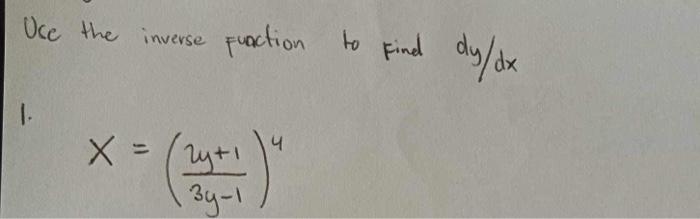 Use the inverse function to Find dy/dx
1.
X = (2y+1 / 3y-1)^4